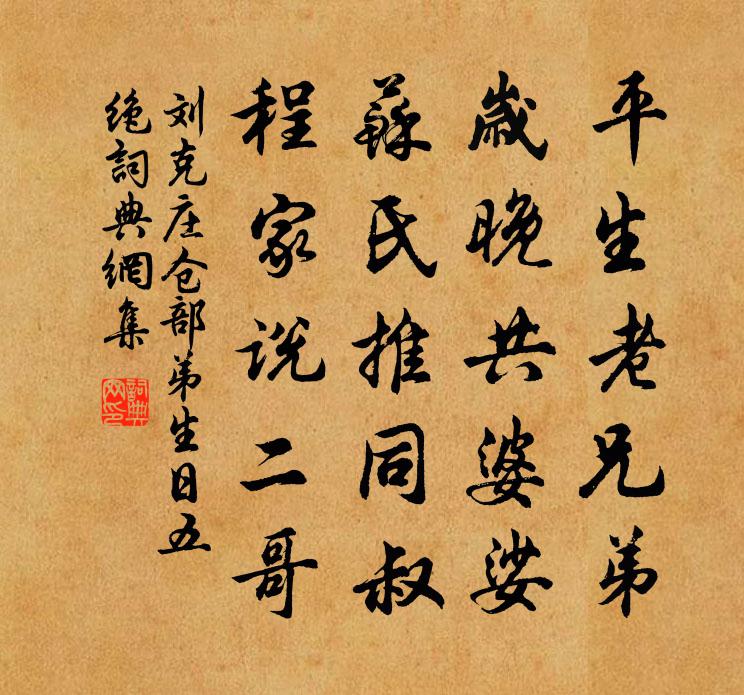 平生老兄弟
歲晚共婆娑
蘇氏推同叔
程家说二哥
刘克庄仓部弟生日五
绝詞典網集
詞典网印